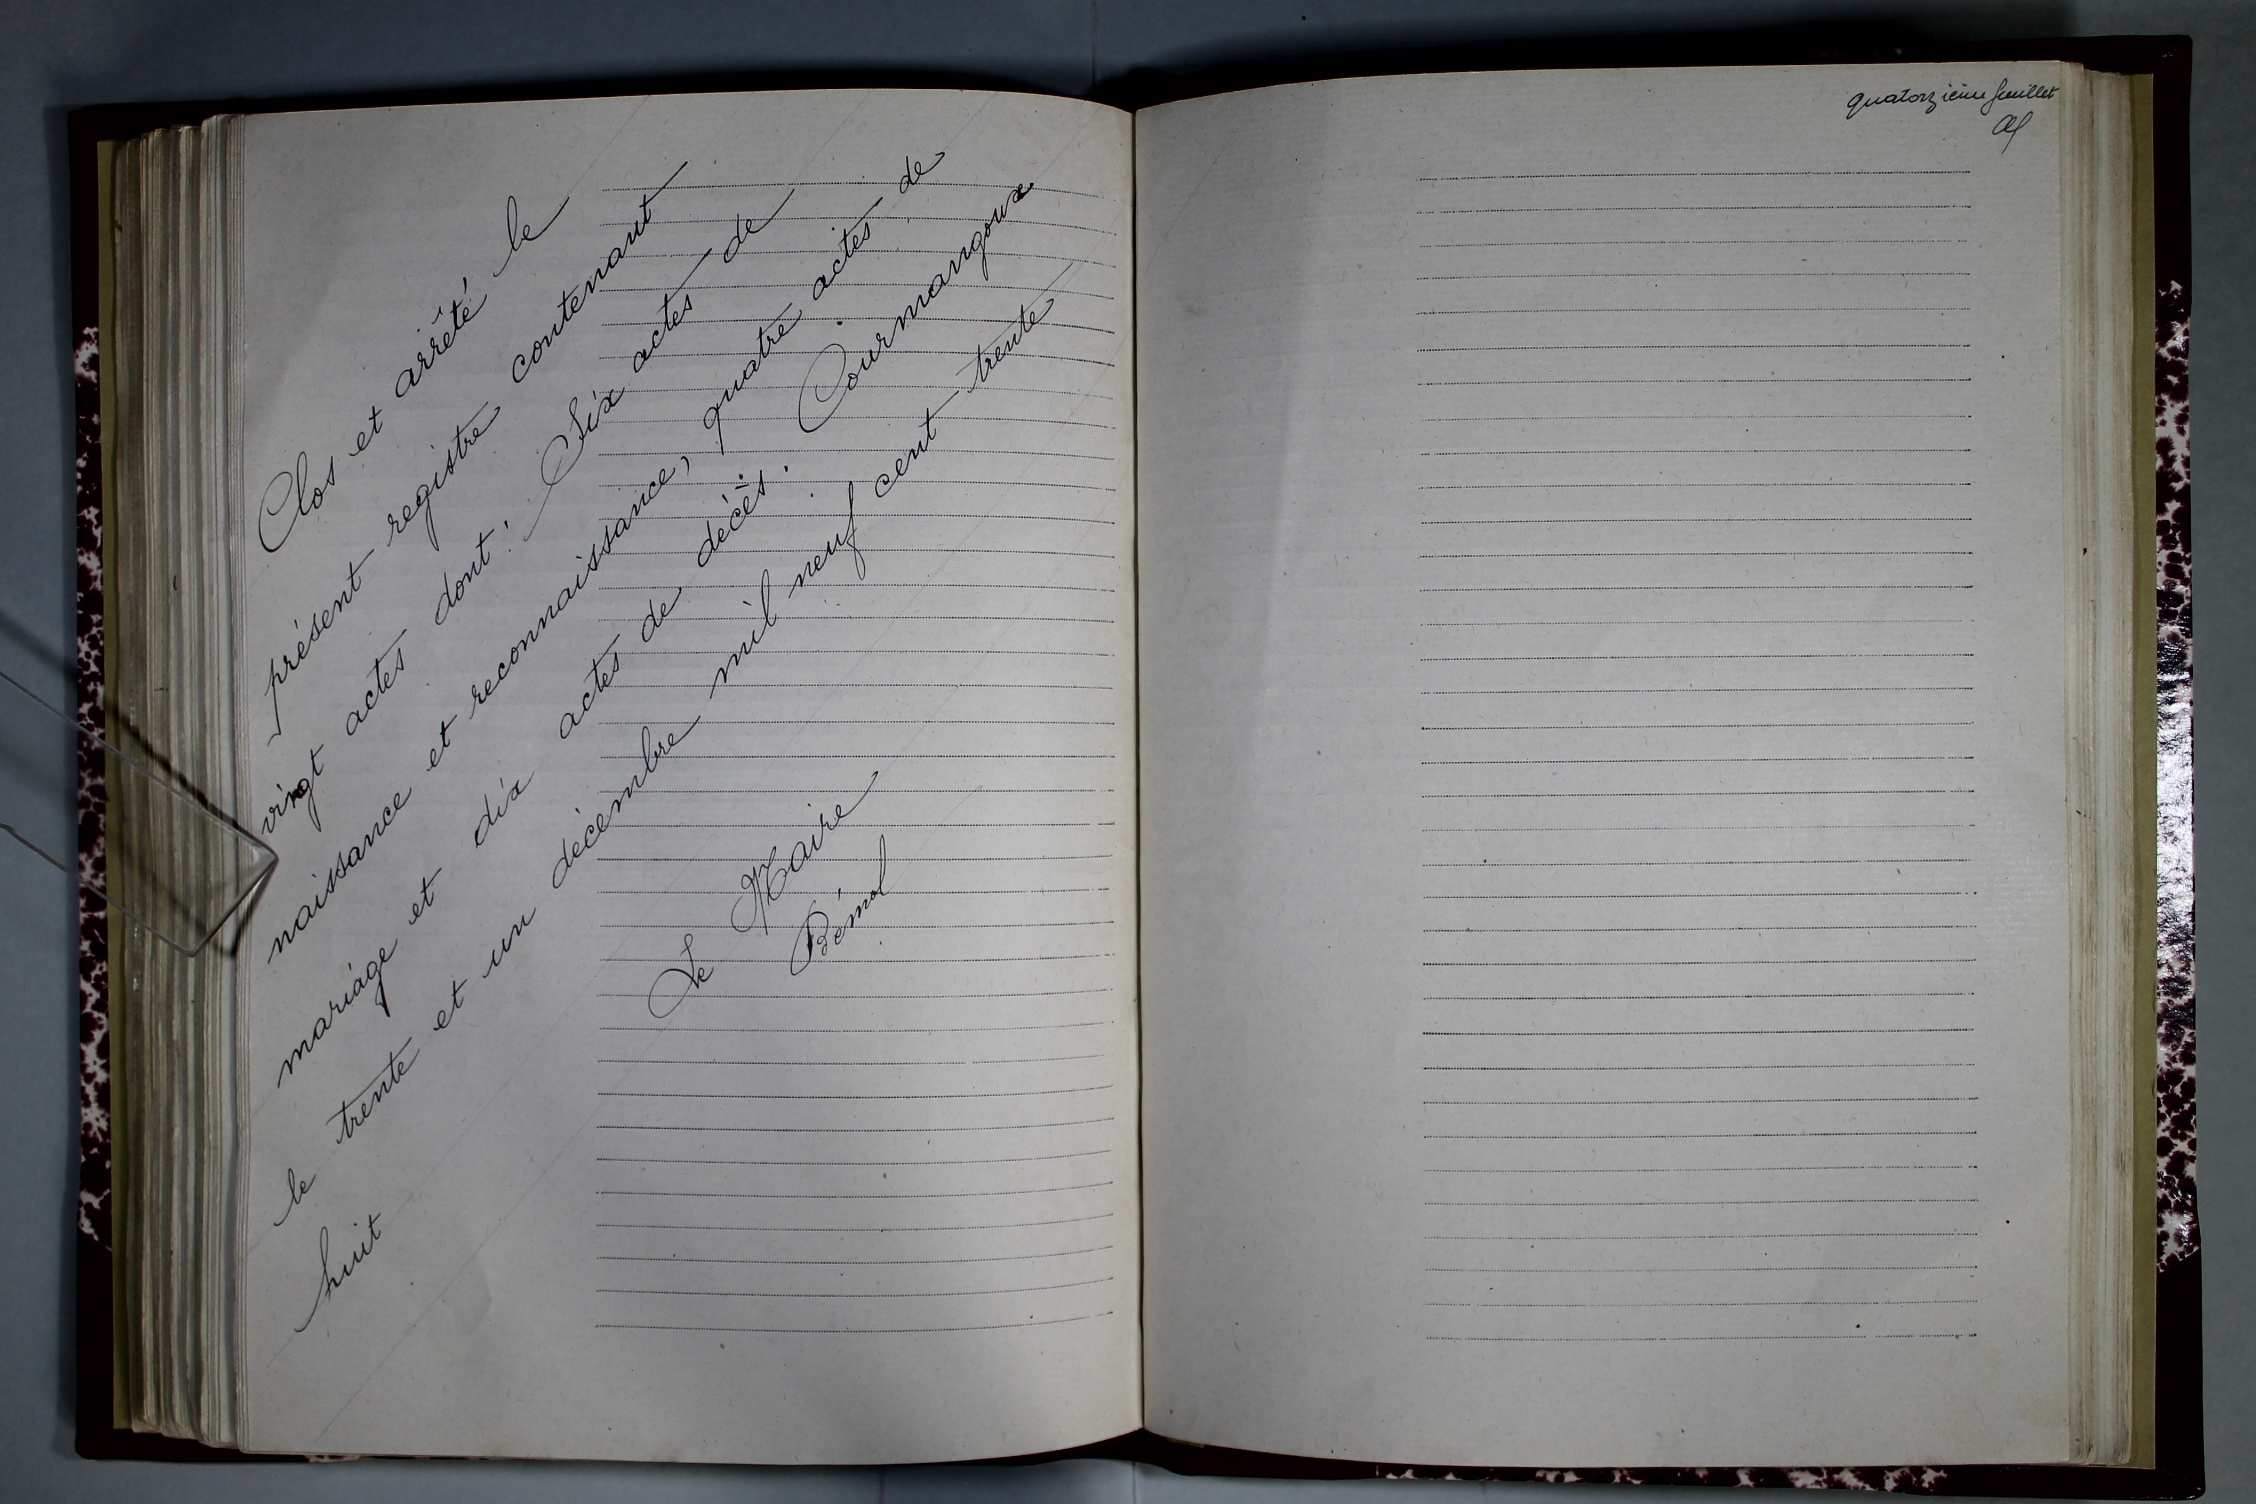 Clos et arrêté le
présent registre contenant
vingt actes dont : Six actes de
naissance et reconnaissance, quatre actes de
mariage et dix actes de décès. Courmangoux
le trente et un décembre mil neuf cent trente
huit
Le Maire
Bémol
quatorzième feuillet